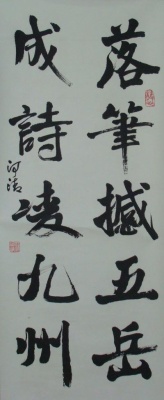 落筆撼五岳
成詩凌九州